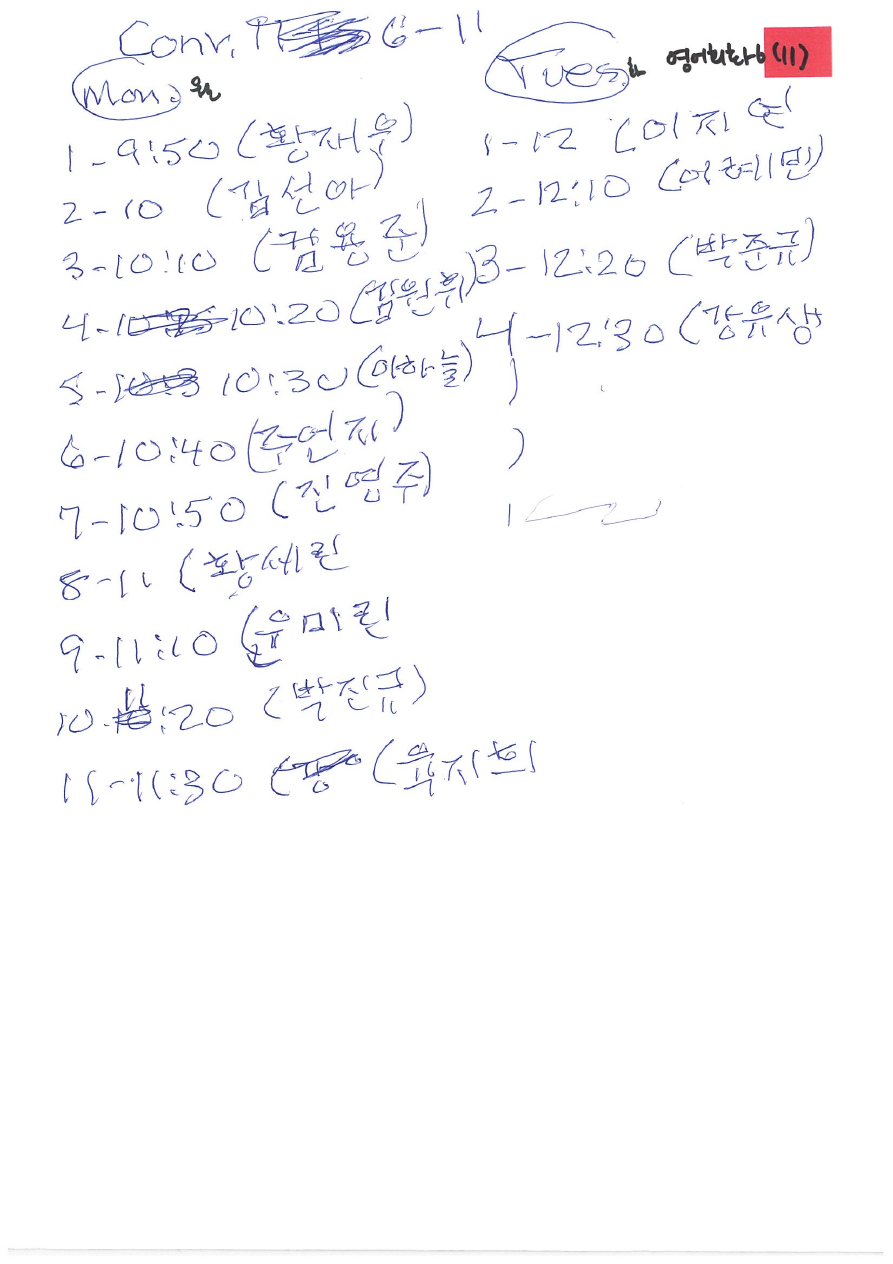 Conv. 6-11
Mon. 월
1-9:50 (황재웅)
2-10 (김선아)
3-10:10 (김용준)
4-10:20 (김원휘)
5-10:30 (이하늘)
6-10:40 (주언지)
7-10:50 (진영주)
8-11 (황세린
9-11:10 (윤미린
10-11:20 (박진규)
11-11:30 (육지희
Tues. 화 영어회화6 (11)
1-12 (이지연
2-12:10 (이혜민)
3-12:20 (박준규)
4-12:30 (강유생